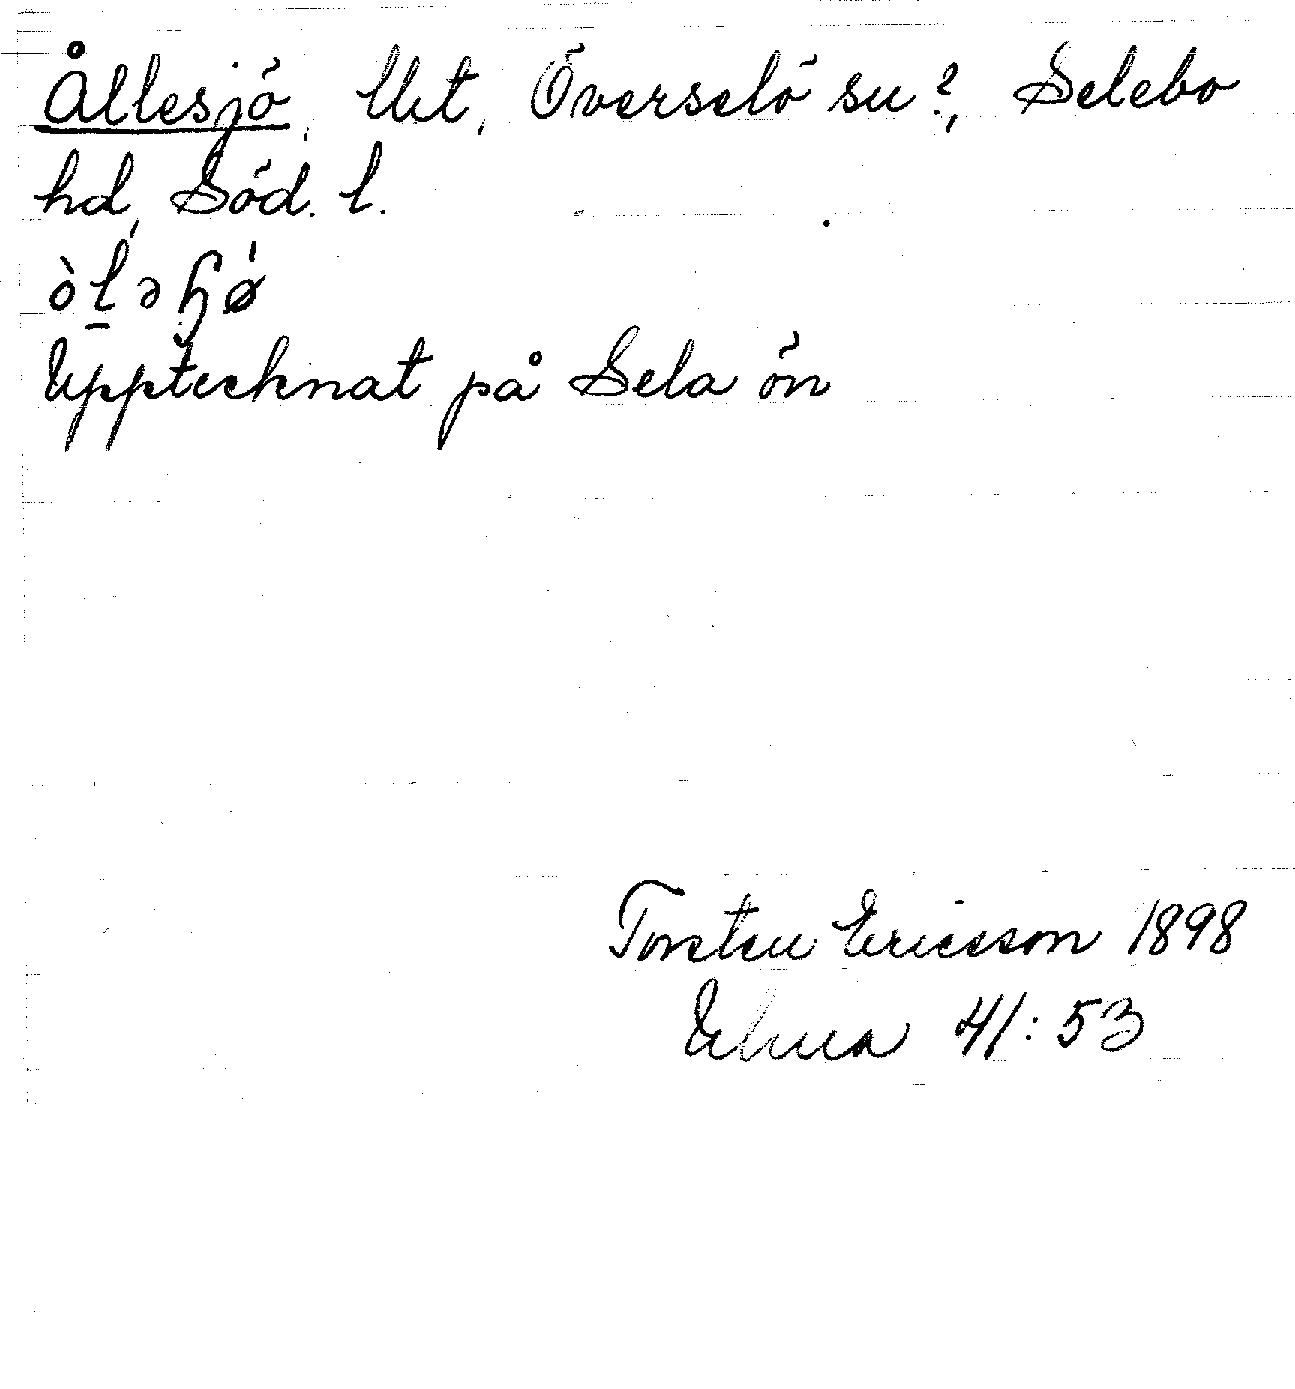 Ållesjö, Ust, Överselö sn?, Selebo
hd, Söd. l.
òl̠əɧǿ
Upptecknat på Sela ön
Torsten Ericsson 1898
41:53